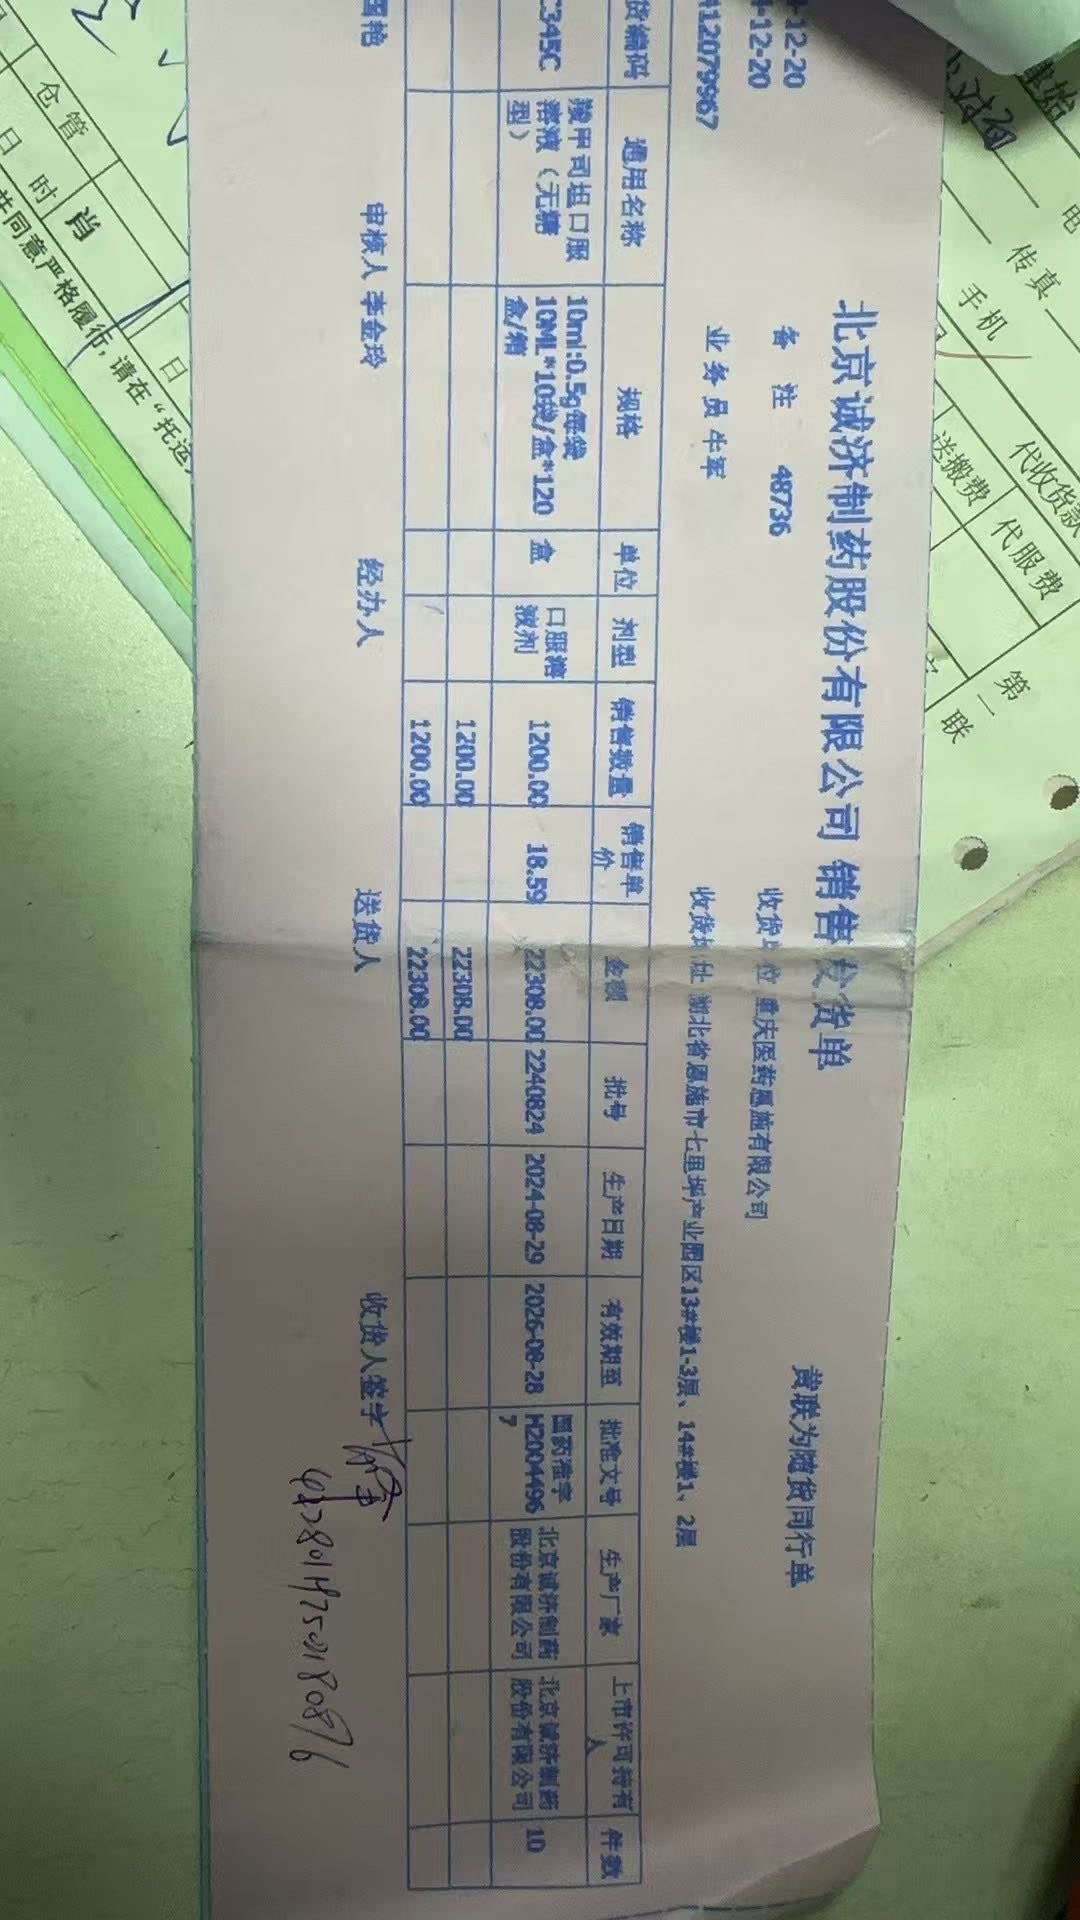 北京诚济制药股份有限公司 销售发货单
黄联为随货同行单
-12-20
备 注 48736
收货单位 重庆医药恩施有限公司
-12-20
412079967
业 务 员 牛军
收货地址 湖北省恩施市七里坪产业园区13#楼1-3层、14#楼1、2层
货编码 通用名称 规格 单位 剂型 销售数量 销售单价 金额 批号 生产日期 有效期至 批准文号 生产厂家 上市许可持有人 件数
C345C
羧甲司坦口服
溶液（无糖
型）
10ml:0.5g每袋
10ML*10袋/盒*120
盒/箱
盒
口服溶
液剂
1200.00 18.59 22308.00 2240824 2024-08-29 2026-08-28
国药准字
H2004496
7
北京诚济制药
股份有限公司
北京诚济制药
股份有限公司
10
1200.00 22308.00
1200.00 22308.00
国艳 审核人 李金玲 经办人 送货人 收货人签字
仓管
日 时
肖
日
共同意严格履行，请在“托运
电
传真
手机
代收货款
送搬费
代服费
第二联